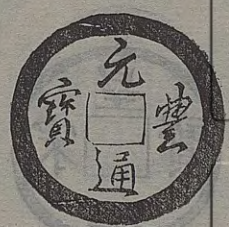 元豐通寶